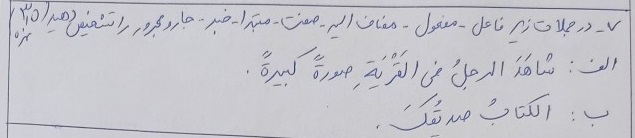 ۷- در جملات زیر فاعل - مفعول - مضاف الیه - صفت - مبتدا - خبر - جار و مجرور را تشخیص دهید (۳/۵ نمره)
الف: شاهَدَ الرجلُ فی القَرْیَةِ صورةً کبیرةً.
ب: الکتابُ صدیقُکَ.